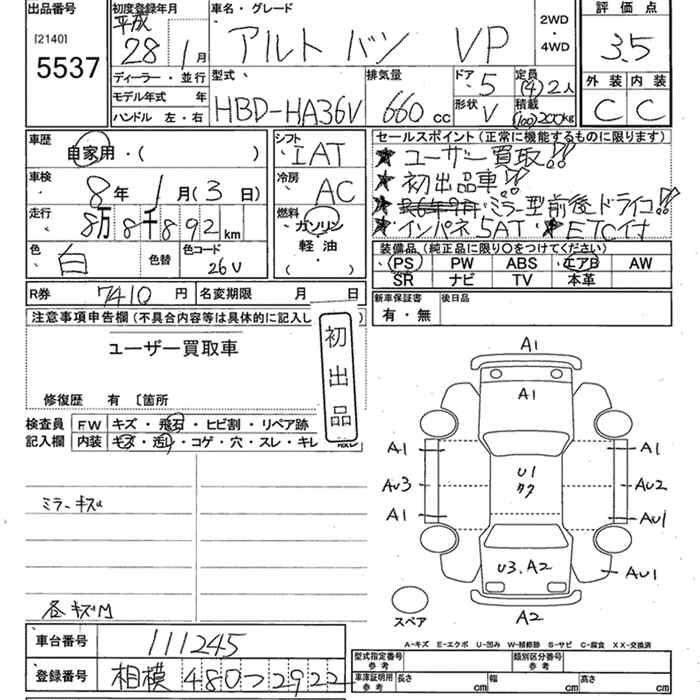 出品番号
[2140]
5537
初度登録年月
平成
28 年 1 月
ディーラー・並行
モデル年式 年
ハンドル 左・右
車名・グレード
アルト バン VP
2WD
・
4WD
型式
HBD-HA36V
排気量
660 cc
ドア
5
形状
V
定員
(4) 2人
積載
(100)200kg
評価点
3.5
外装 内装
C C
車歴
自家用・( )
車検
8年 1月(3日)
走行
8万8千892km
色
白
色替
色コード
26V
シフト
IAT
冷房
AC
燃料
ガソリン
軽油
( )
セールスポイント(正常に機能するものに限ります)
★ユーザー買取!!
★初出品車!!
★ミラー型前後ドライコ!!
★インパネ5AT・★ETC付
装備品(純正品に限り○をつけてください)
PS PW ABS エアB AW
SR ナビ TV 本革
R券 7410 円 名変期限 月 日
新車保証書
有・無
後日品
注意事項申告欄(不具合内容等は具体的に記入し
ユーザー買取車
修復歴 有〔箇所
初出品
検査員
記入欄
FW キズ・飛石・ヒビ割・リペア跡
内装 キズ・汚れ・コゲ・穴・スレ・キレ
ミラーキズ
各キズM
A1
A1
A1 A1
U1
タク
AU3 AU2
A1 AU1
U3.A2
AU1
A2
スペア
A-キズ E-エクボ U-凹み W-補修跡 S-サビ C-腐食 XX-交換済
車台番号 111245
登録番号 相模 480つ2922
型式指定番号
参考
類別区分番号
参考
車庫証明用
参考
長さ cm 幅 cm 高さ cm